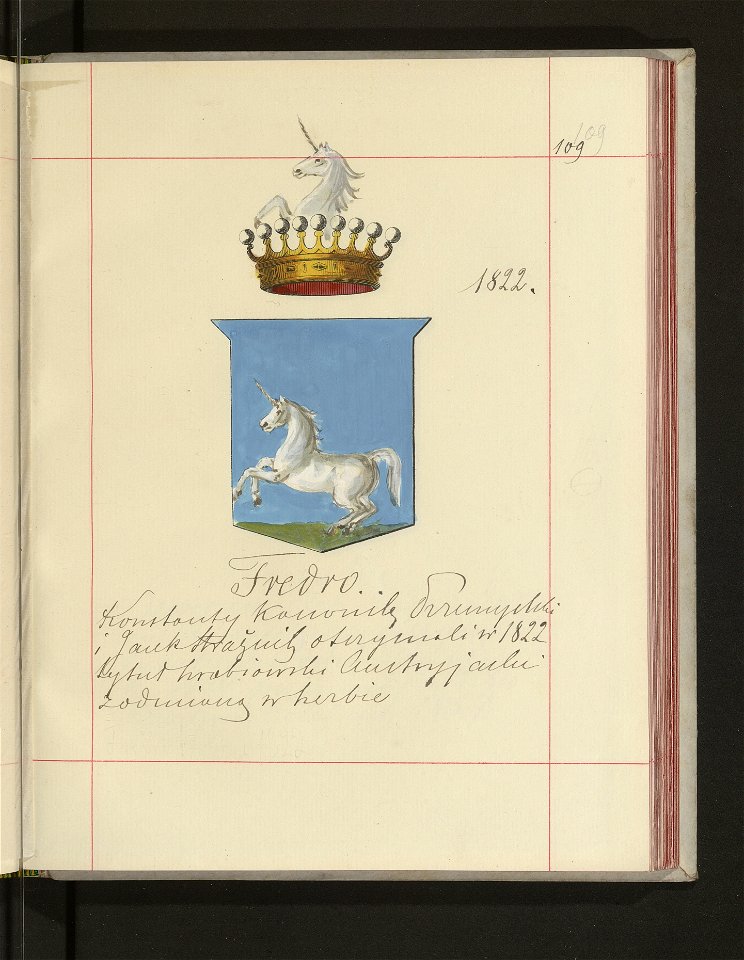 109
109
1822.
Fredro.
Konstanty Kanonik Przemyski
i Jacek Strażnik otrzymali w 1822
tytuł hrabiowski Austryjacki
z odmianą w herbie